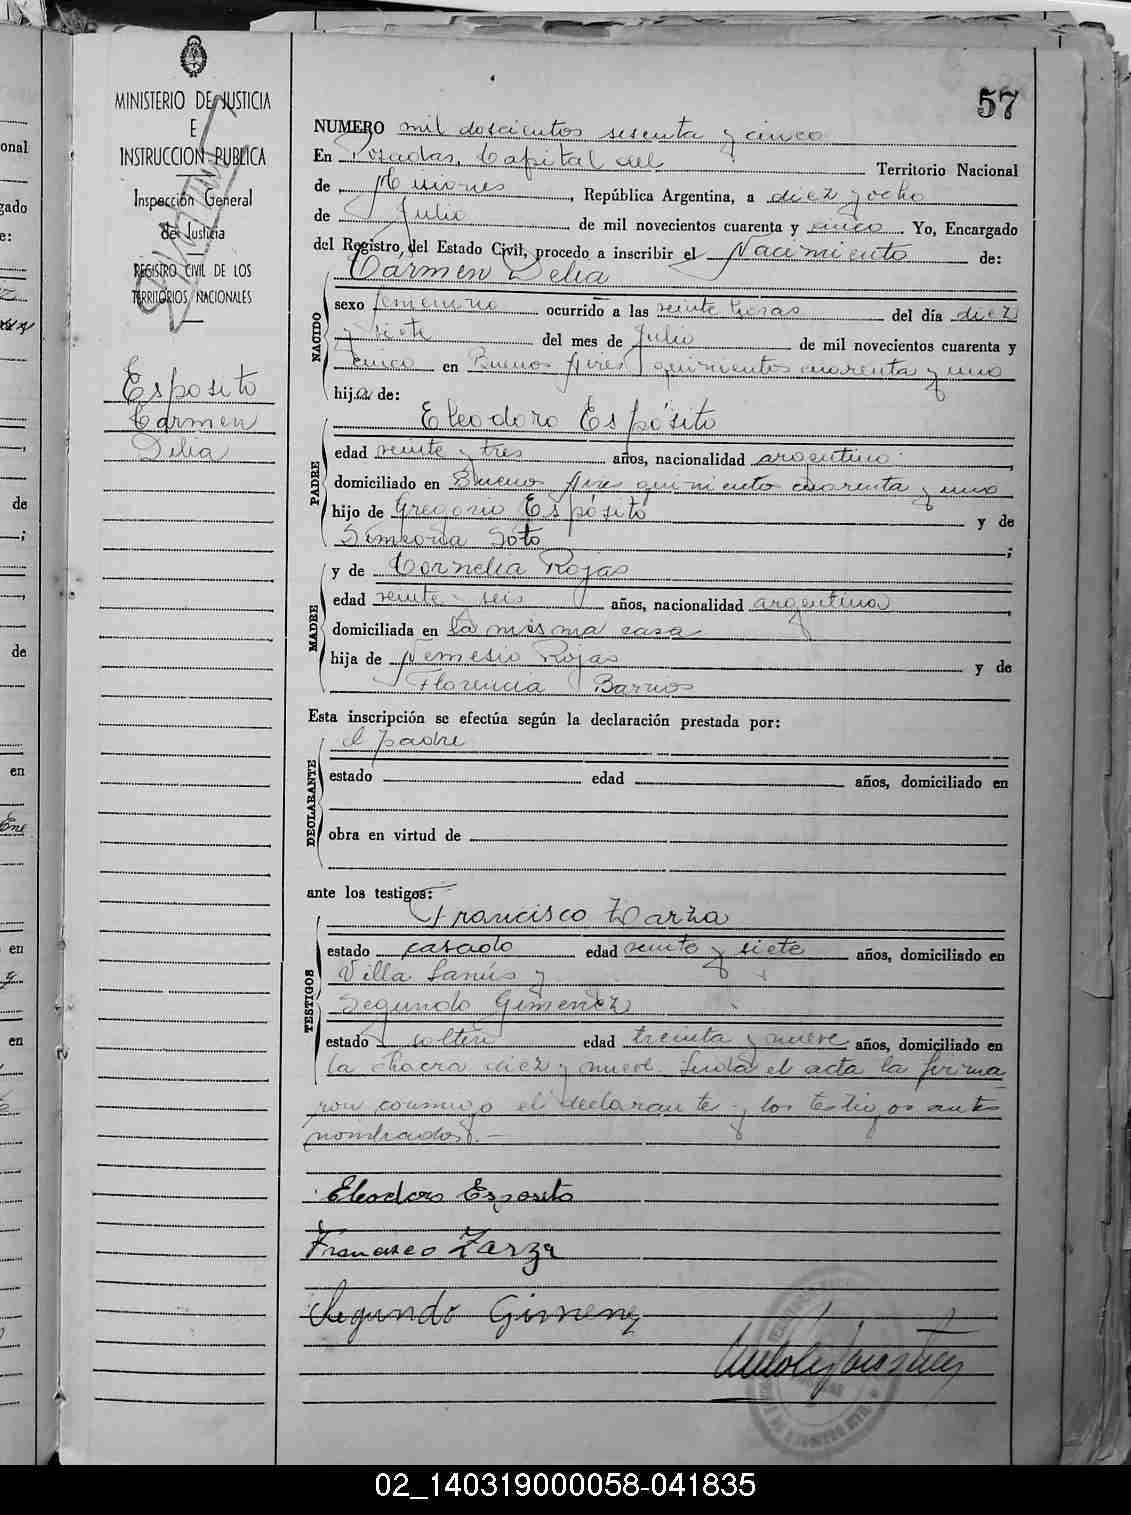 57
MINISTERIO DE JUSTICIA
E
INSTRUCCION PUBLICA
Inspección General
de Justicia
REGISTRO CIVIL DE LOS
TERRITORIOS NACIONALES
Esposito
Carmen
Delia
NUMERO mil doscientos sesenta y cinco
En Posadas, Capital del Territorio Nacional
de Misiones, República Argentina, a diez y ocho
de Julio de mil novecientos cuarenta y cinco. Yo, Encargado
del Registro del Estado Civil, procedo a inscribir el Nacimiento de:
Cármen Delia
NACIDO
sexo femenino ocurrido a las veinte horas del día diez
y siete del mes de Julio de mil novecientos cuarenta y
cinco en Buenos Aires quinientos cuarenta y uno
hija de:
Eleodoro Espósito
PADRE
edad veinte y tres años, nacionalidad argentino,
domiciliado en Buenos Aires quinientos cuarenta y uno
hijo de Gregorio Espósito y de
Simeona Soto;
y de Cornelia Rojas
MADRE
edad veinte y seis años, nacionalidad argentina,
domiciliada en la misma casa
hija de Nemesio Rojas y de
Florencia Barrios
Esta inscripción se efectúa según la declaración prestada por:
el padre
DECLARANTE
estado edad años, domiciliado en
obra en virtud de
ante los testigos:
Francisco Zarza
TESTIGOS
estado casado edad veinte y siete años, domiciliado en
Villa Lanús y
Segundo Gimenez
estado soltero edad treinta y nueve años, domiciliado en
la chacra diez y nueve. Leida el acta la firma
ron conmigo el declarante y los testigos ante
nombrados.—
Eleodoro Esposito
Francisco Zarza
Segundo Gimenez
02_140319000058-041835